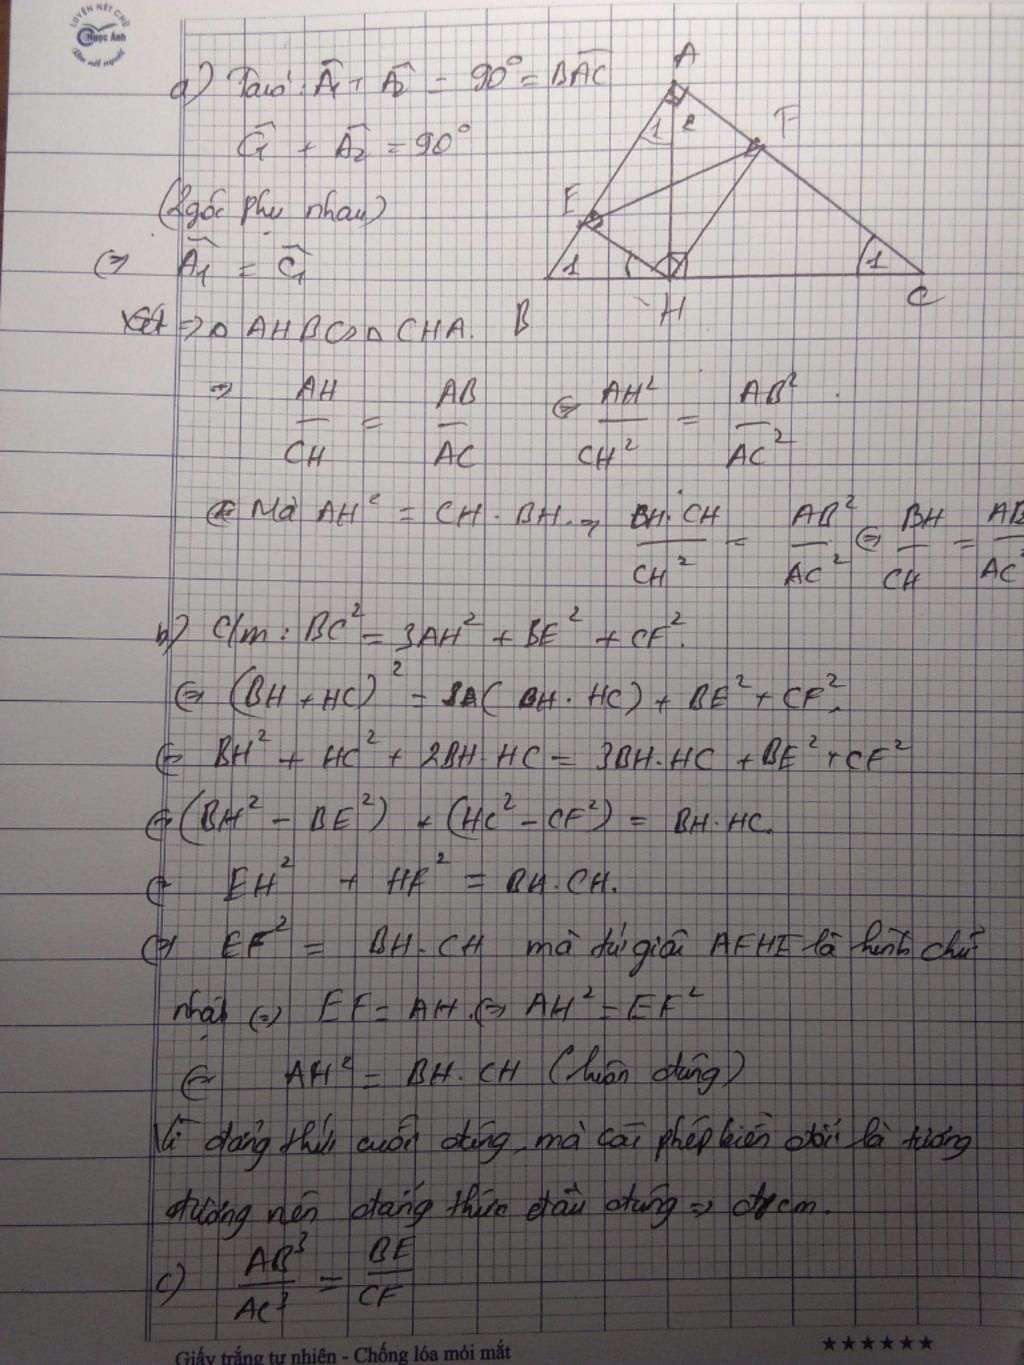 LUYỆN NÉT CHỮ
Ngọc Ánh
Rèn nết người
a) Ta có: Â1 + Â2 = 90° = BÂC
Ĉ1 + Â2 = 90°
(2 góc phụ nhau)
⇔ Â1 = Ĉ1
⇒ Δ AHB ∽ Δ CHA.
⇒ AH/CH = AB/AC ⇔ AH²/CH² = AB²/AC²
Mà AH² = CH . BH. ⇒ BH.CH/CH² = AB²/AC² ⇔ BH/CH = AB/AC²
A
1 2
F
E
1
1
B
H
C
b) C/m : BC² = 3AH² + BE² + CF².
⇔ (BH + HC)² = 3(BH . HC) + BE² + CF².
⇔ BH² + HC² + 2BH.HC = 3BH.HC + BE² + CF²
⇔ (BH² - BE²) + (HC² - CF²) = BH.HC.
⇔ EH² + HF² = BH.CH.
⇔ EF² = BH.CH mà tứ giác AFHE là hình chữ
nhật ⇔ EF = AH. ⇔ AH² = EF²
⇔ AH² = BH.CH (luôn đúng)
Vì đẳng thức cuối đúng, mà các phép biến đổi là tương
đương nên đẳng thức đầu đúng ⇒ đpcm.
c) AB³/AC³ = BE/CF
Giấy trắng tự nhiên - Chống lóa mỏi mắt
★★★★★★